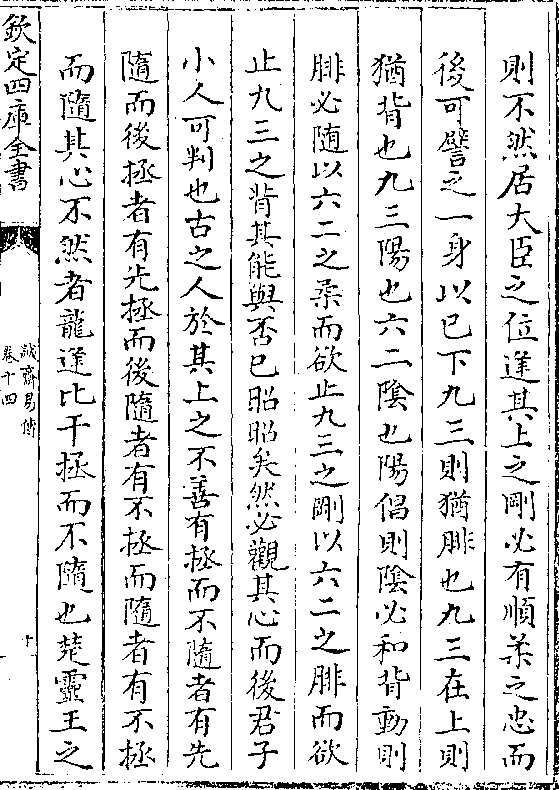 則不然居大臣之位逢其上之剛必有順柔之忠而
後可譬之一身以巳下九三則猶腓也九三在上則
猶背也九三陽也六二陰也陽倡則陰必和背動則
腓必隨以六二之柔而欲止九三之剛以六二之腓而欲
止九三之背其能與否巳昭昭矣然必觀其心而後君子
小人可判也古之人於其上之不善有拯而不隨者有先
隨而後拯者有先拯而後隨者有不拯而隨者有不拯
而隨其心不然者龍逄比干拯而不隨也楚靈王之
欽定四庫全書
誠齋易傳
卷十四
十